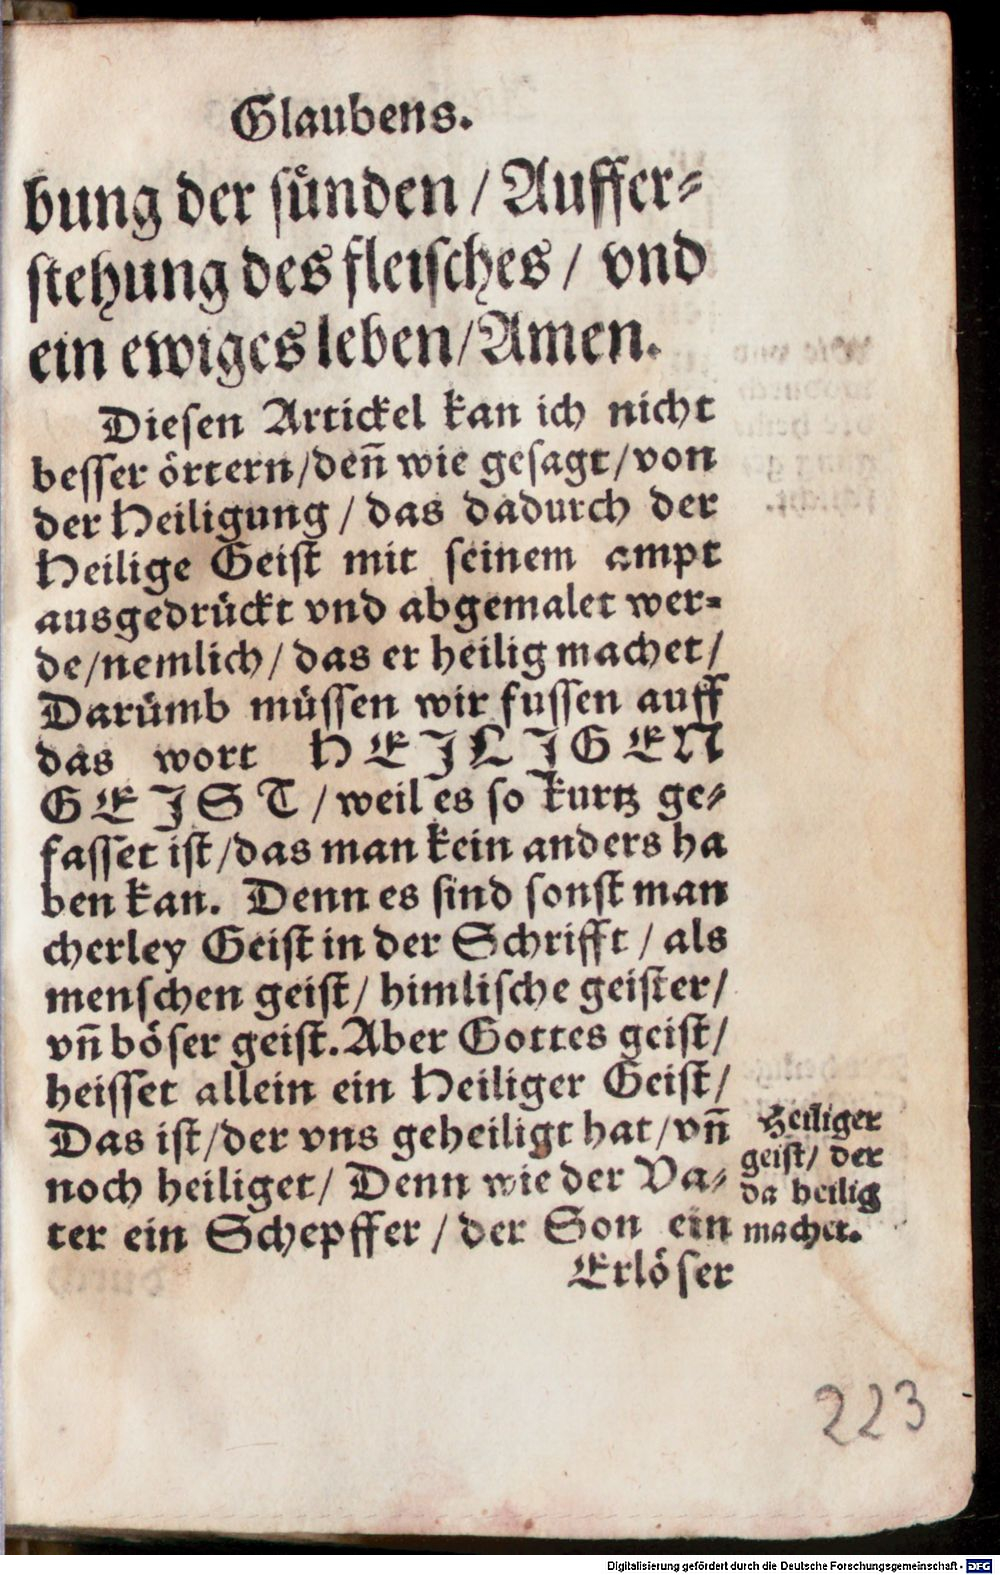 Glaubens.
bung der sünden / Auffer⸗
stehung des fleisches / vnd
ein ewiges leben / Amen.
Diesen Artickel kan ich nicht
besser örtern / deñ wie gesagt / von
der Heiligung / das dadurch der
Heilige Geist mit seinem ampt
ausgedrückt vnd abgemalet wer⸗
de / nemlich / das er heilig machet /
Darümb müssen wir fussen auff
das wort HEILIGEN
GEIST / weil es so kurtz ge⸗
fasset ist / das man kein anders ha
ben kan. Denn es sind sonst man
cherley Geist in der Schrifft / als
menschen geist / himlische geister /
vñ böser geist. Aber Gottes geist /
heisset allein ein Heiliger Geist /
Das ist / der vns geheiligt hat / vñ
noch heiliget / Denn wie der Va⸗
ter ein Schepffer / der Son ein
Erlöser
Heiliger
geist / der
da heilig
machet.
223
Digitalisierung gefördert durch die Deutsche Forschungsgemeinschaft - DFG